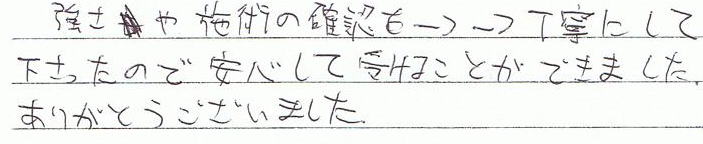 強さや施術の確認も一つ一つ丁寧にして
下さったので安心して受けることができました。
ありがとうございました。